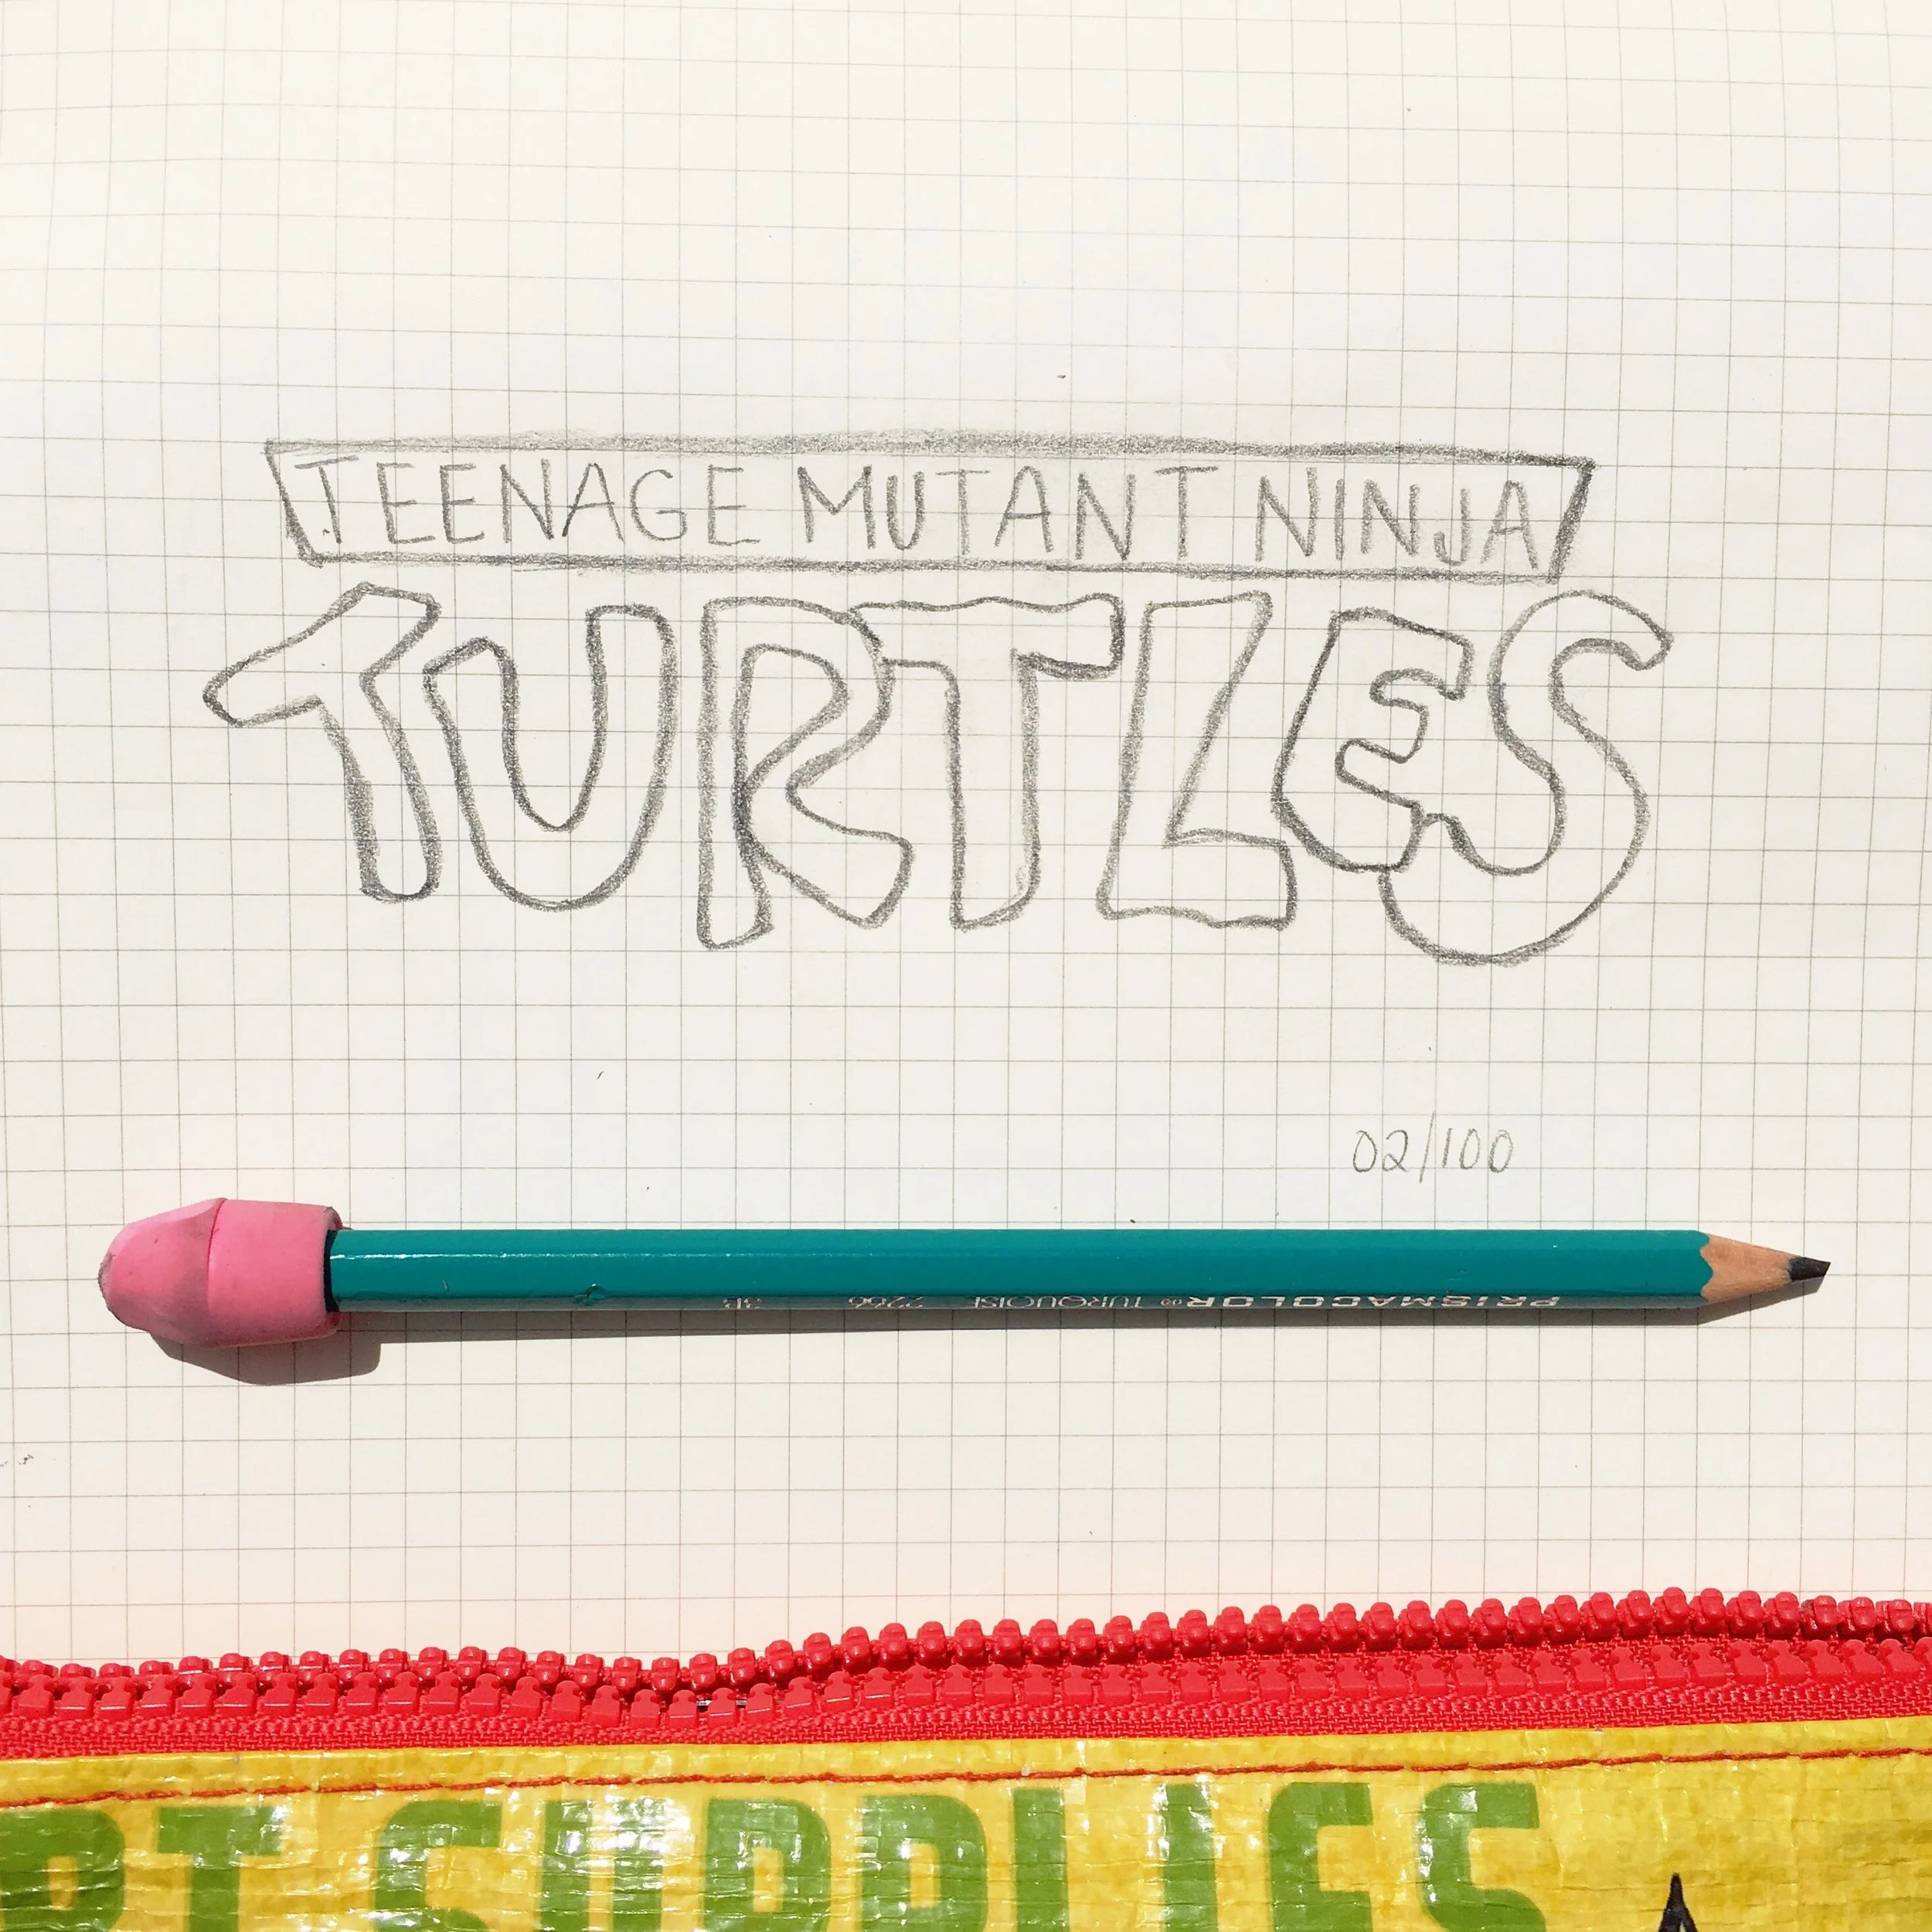 TEENAGE MUTANT NINJA
TURTLES
02/100
PRISMACOLOR TURQUOISE 2266 3B
RT SUPPLIES